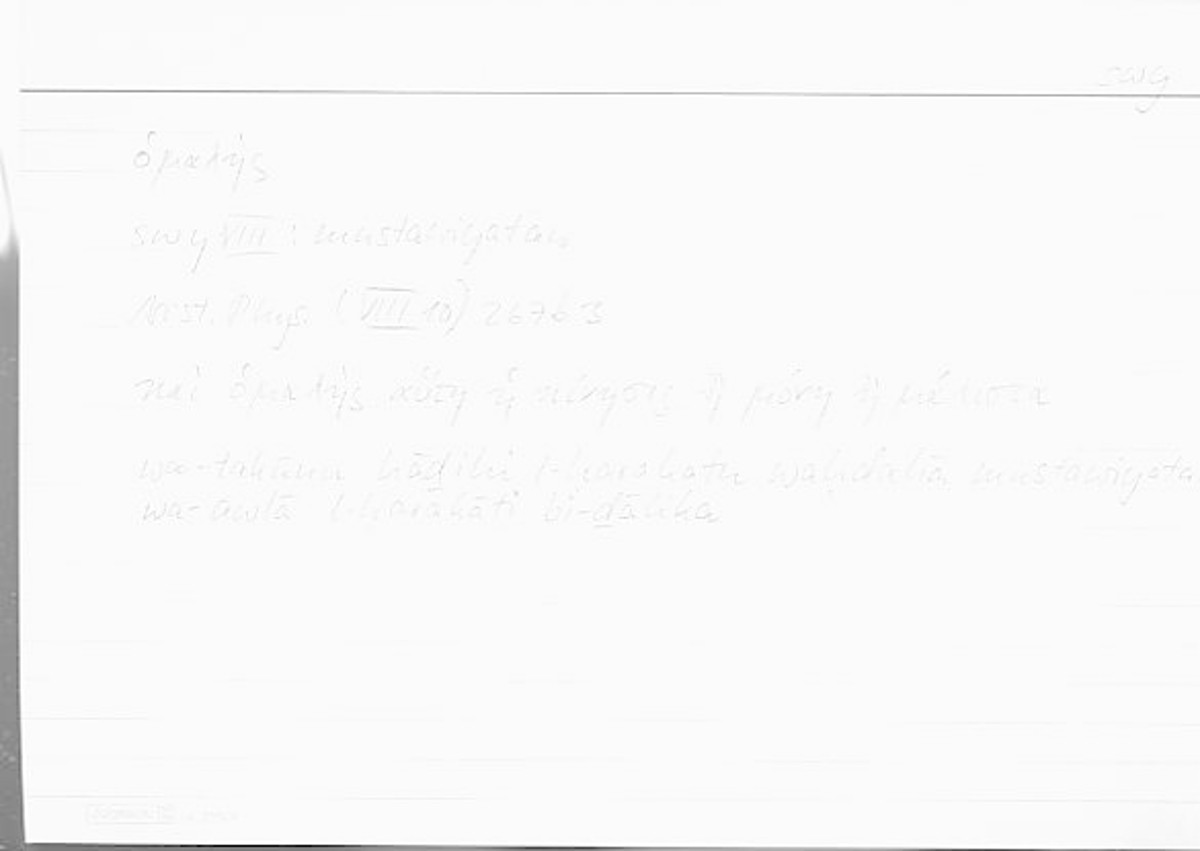 swy
ὁμαλής
swy VIII : mustawiyatan
Arist. Phys. (VIII 10) 267b3
καὶ ὁμαλὴς αὕτη ἡ κίνησις ἢ μόνη ἢ μάλιστα
wa-takūnu hāḏihi l-ḥarakatu waḥdahā mustawiyata
wa-awlā l-ḥarakāti bi-ḏālika